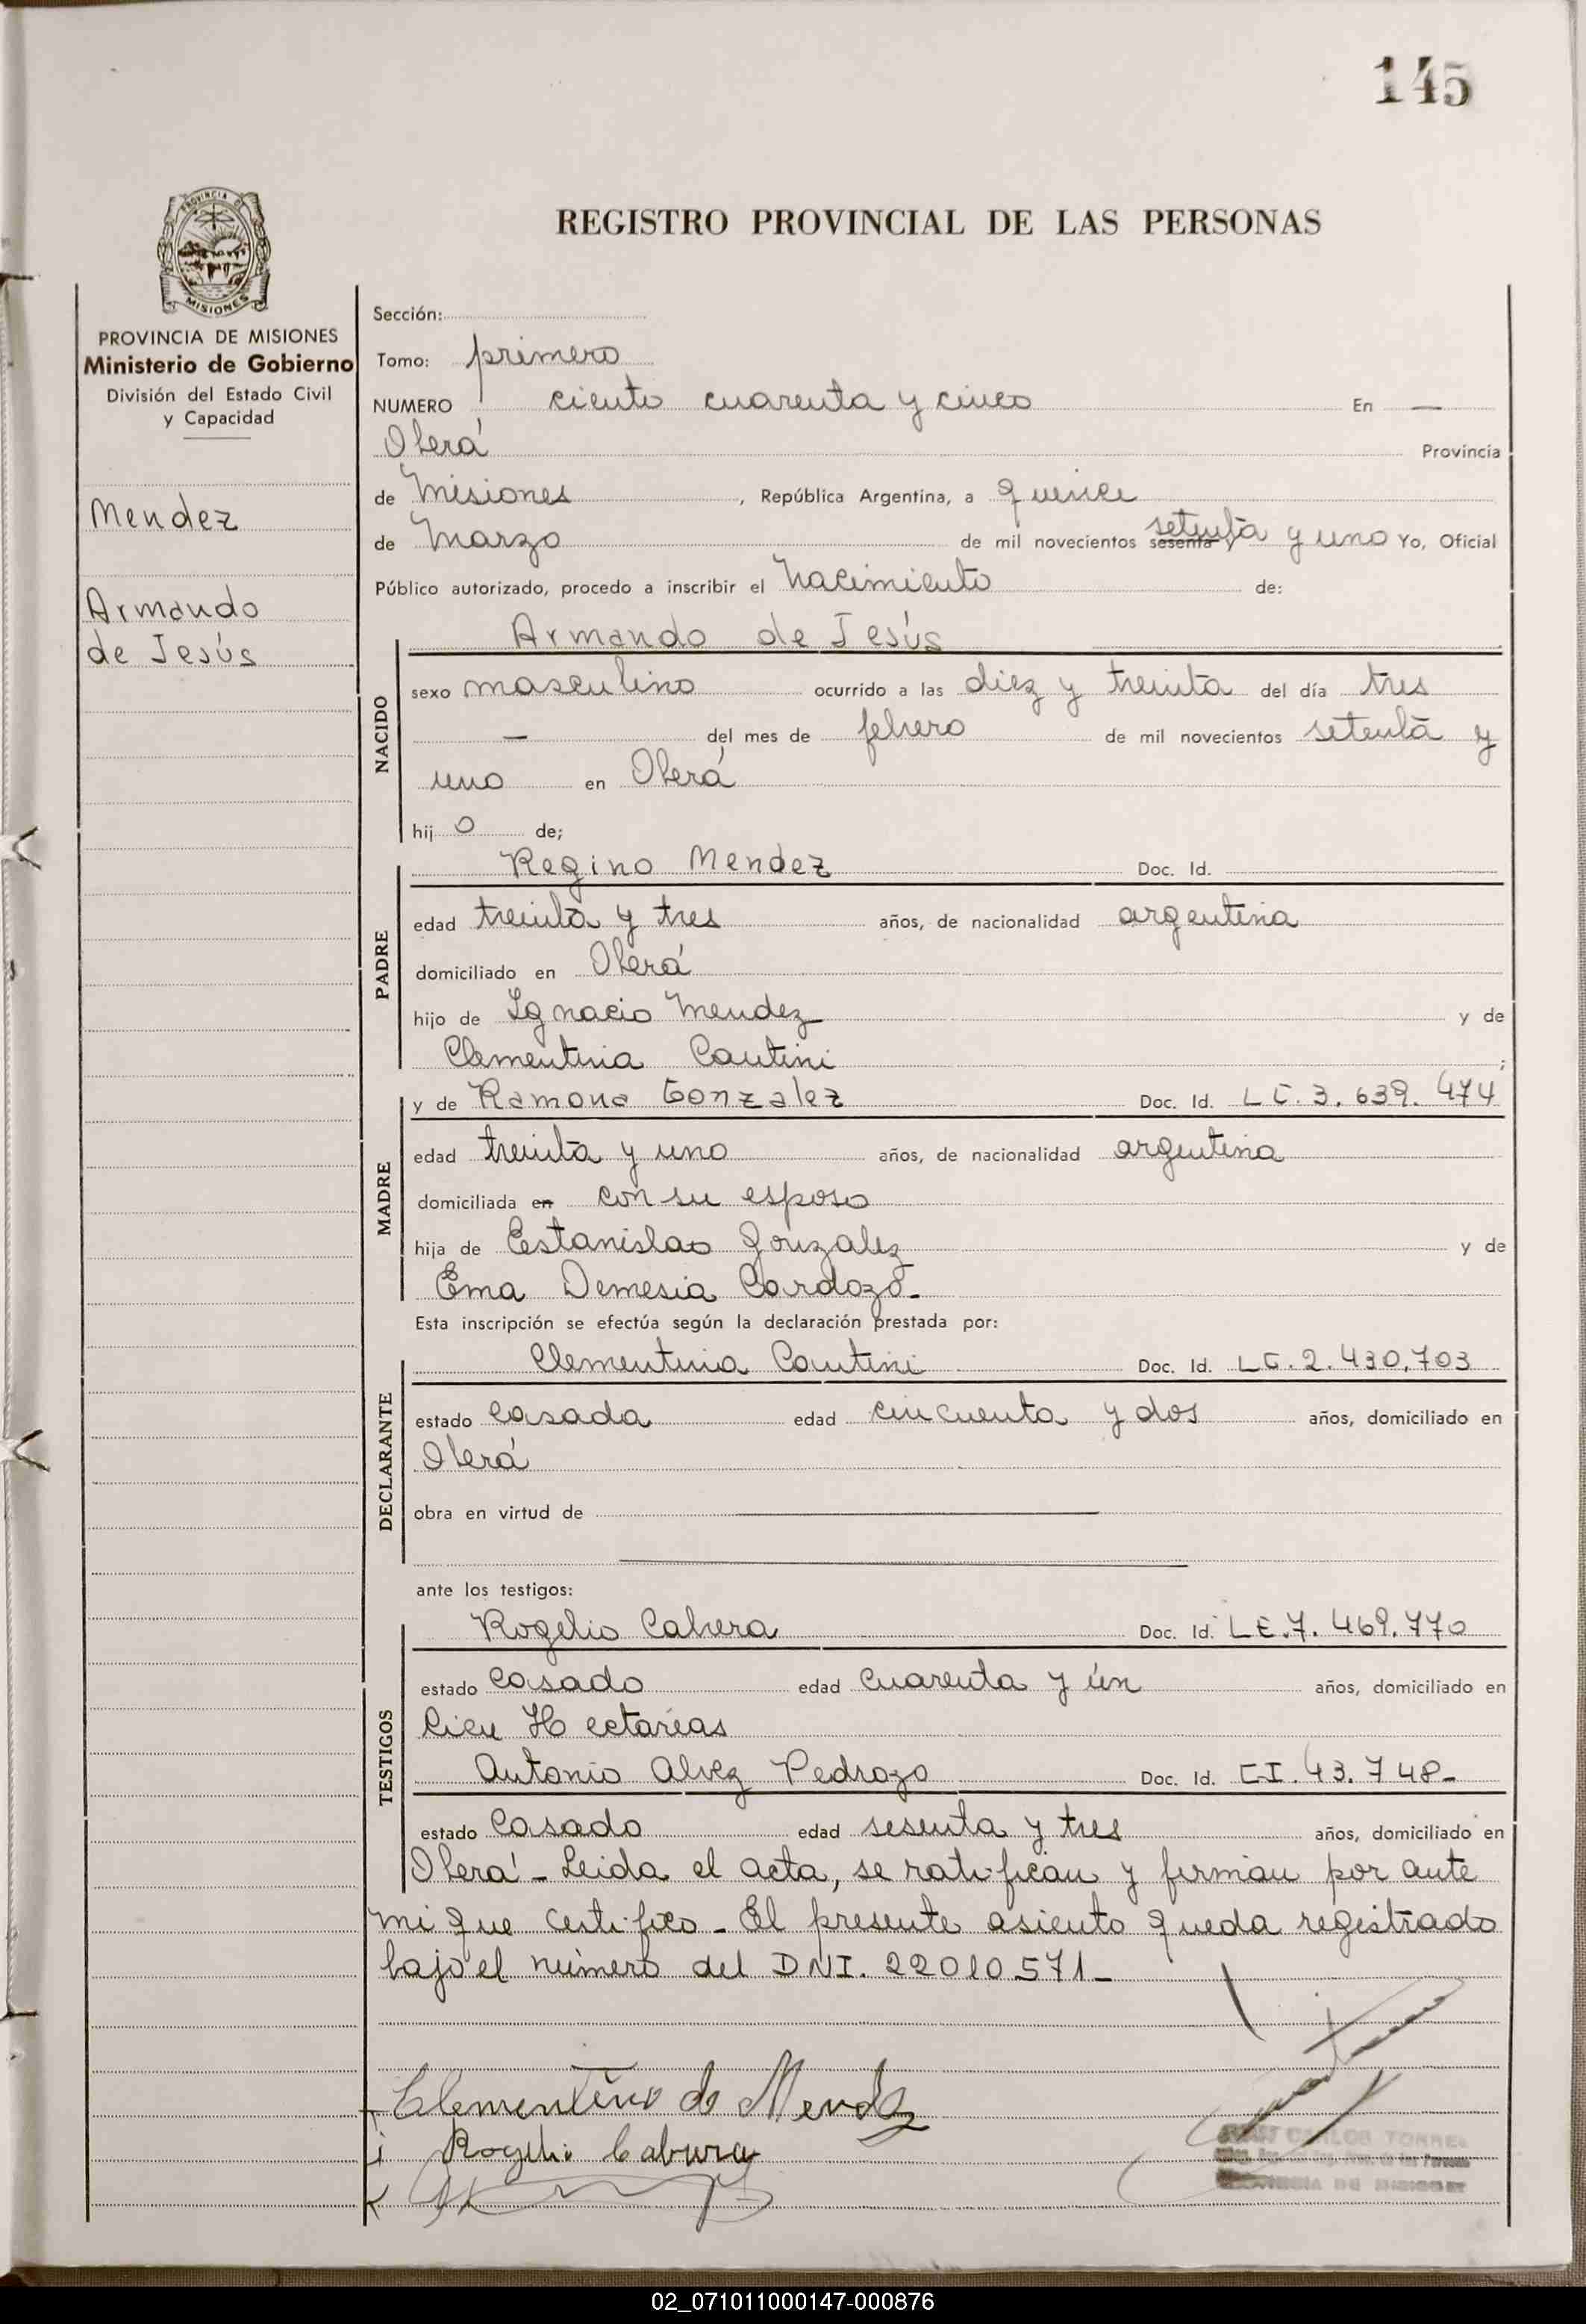 145
PROVINCIA DE
MISIONES
REGISTRO PROVINCIAL DE LAS PERSONAS
PROVINCIA DE MISIONES
Ministerio de Gobierno
División del Estado Civil
y Capacidad
Mendez
Armando
de Jesús
Sección:
Tomo: primero
NUMERO ciento cuarenta y cinco En —
Oberá Provincia
de Misiones, República Argentina, a quince
de Marzo de mil novecientos sesenta y setenta y uno Yo, Oficial
Público autorizado, procedo a inscribir el nacimiento de:
Armando de Jesús
NACIDO
sexo masculino ocurrido a las diez y treinta del día tres
— del mes de febrero de mil novecientos setenta y
uno en Oberá
hijo de;
Regino Mendez Doc. Id.
PADRE
edad treinta y tres años, de nacionalidad argentina
domiciliado en Oberá
hijo de Ignacio Mendez y de
Clementina Cantini ;
y de Ramona Gonzalez Doc. Id. L C. 3. 639. 474
MADRE
edad treinta y uno años, de nacionalidad argentina
domiciliada en con su esposo
hija de Estanislao Gonzalez y de
Ema Demesia Cardozo.
Esta inscripción se efectúa según la declaración prestada por:
Clementina Cantini Doc. Id. L C. 2. 430. 703
DECLARANTE
estado casada edad cincuenta y dos años, domiciliado en
Oberá
obra en virtud de
ante los testigos:
Rogelio Cabrera Doc. Id. L E. 7. 469. 770
TESTIGOS
estado casado edad cuarenta y ún años, domiciliado en
Cien Hectareas
Antonio Alvez Pedrozo Doc. Id. C I. 43. 748-
estado casado edad sesenta y tres años, domiciliado en
Oberá - Leida el acta, se ratifican y firman por ante
mi que certifico - El presente asiento queda registrado
bajo el número del DNI. 22010571-
Clementina de Mendez
Rogelio Cabrera
CARLOS TORRE
02_071011000147-000876